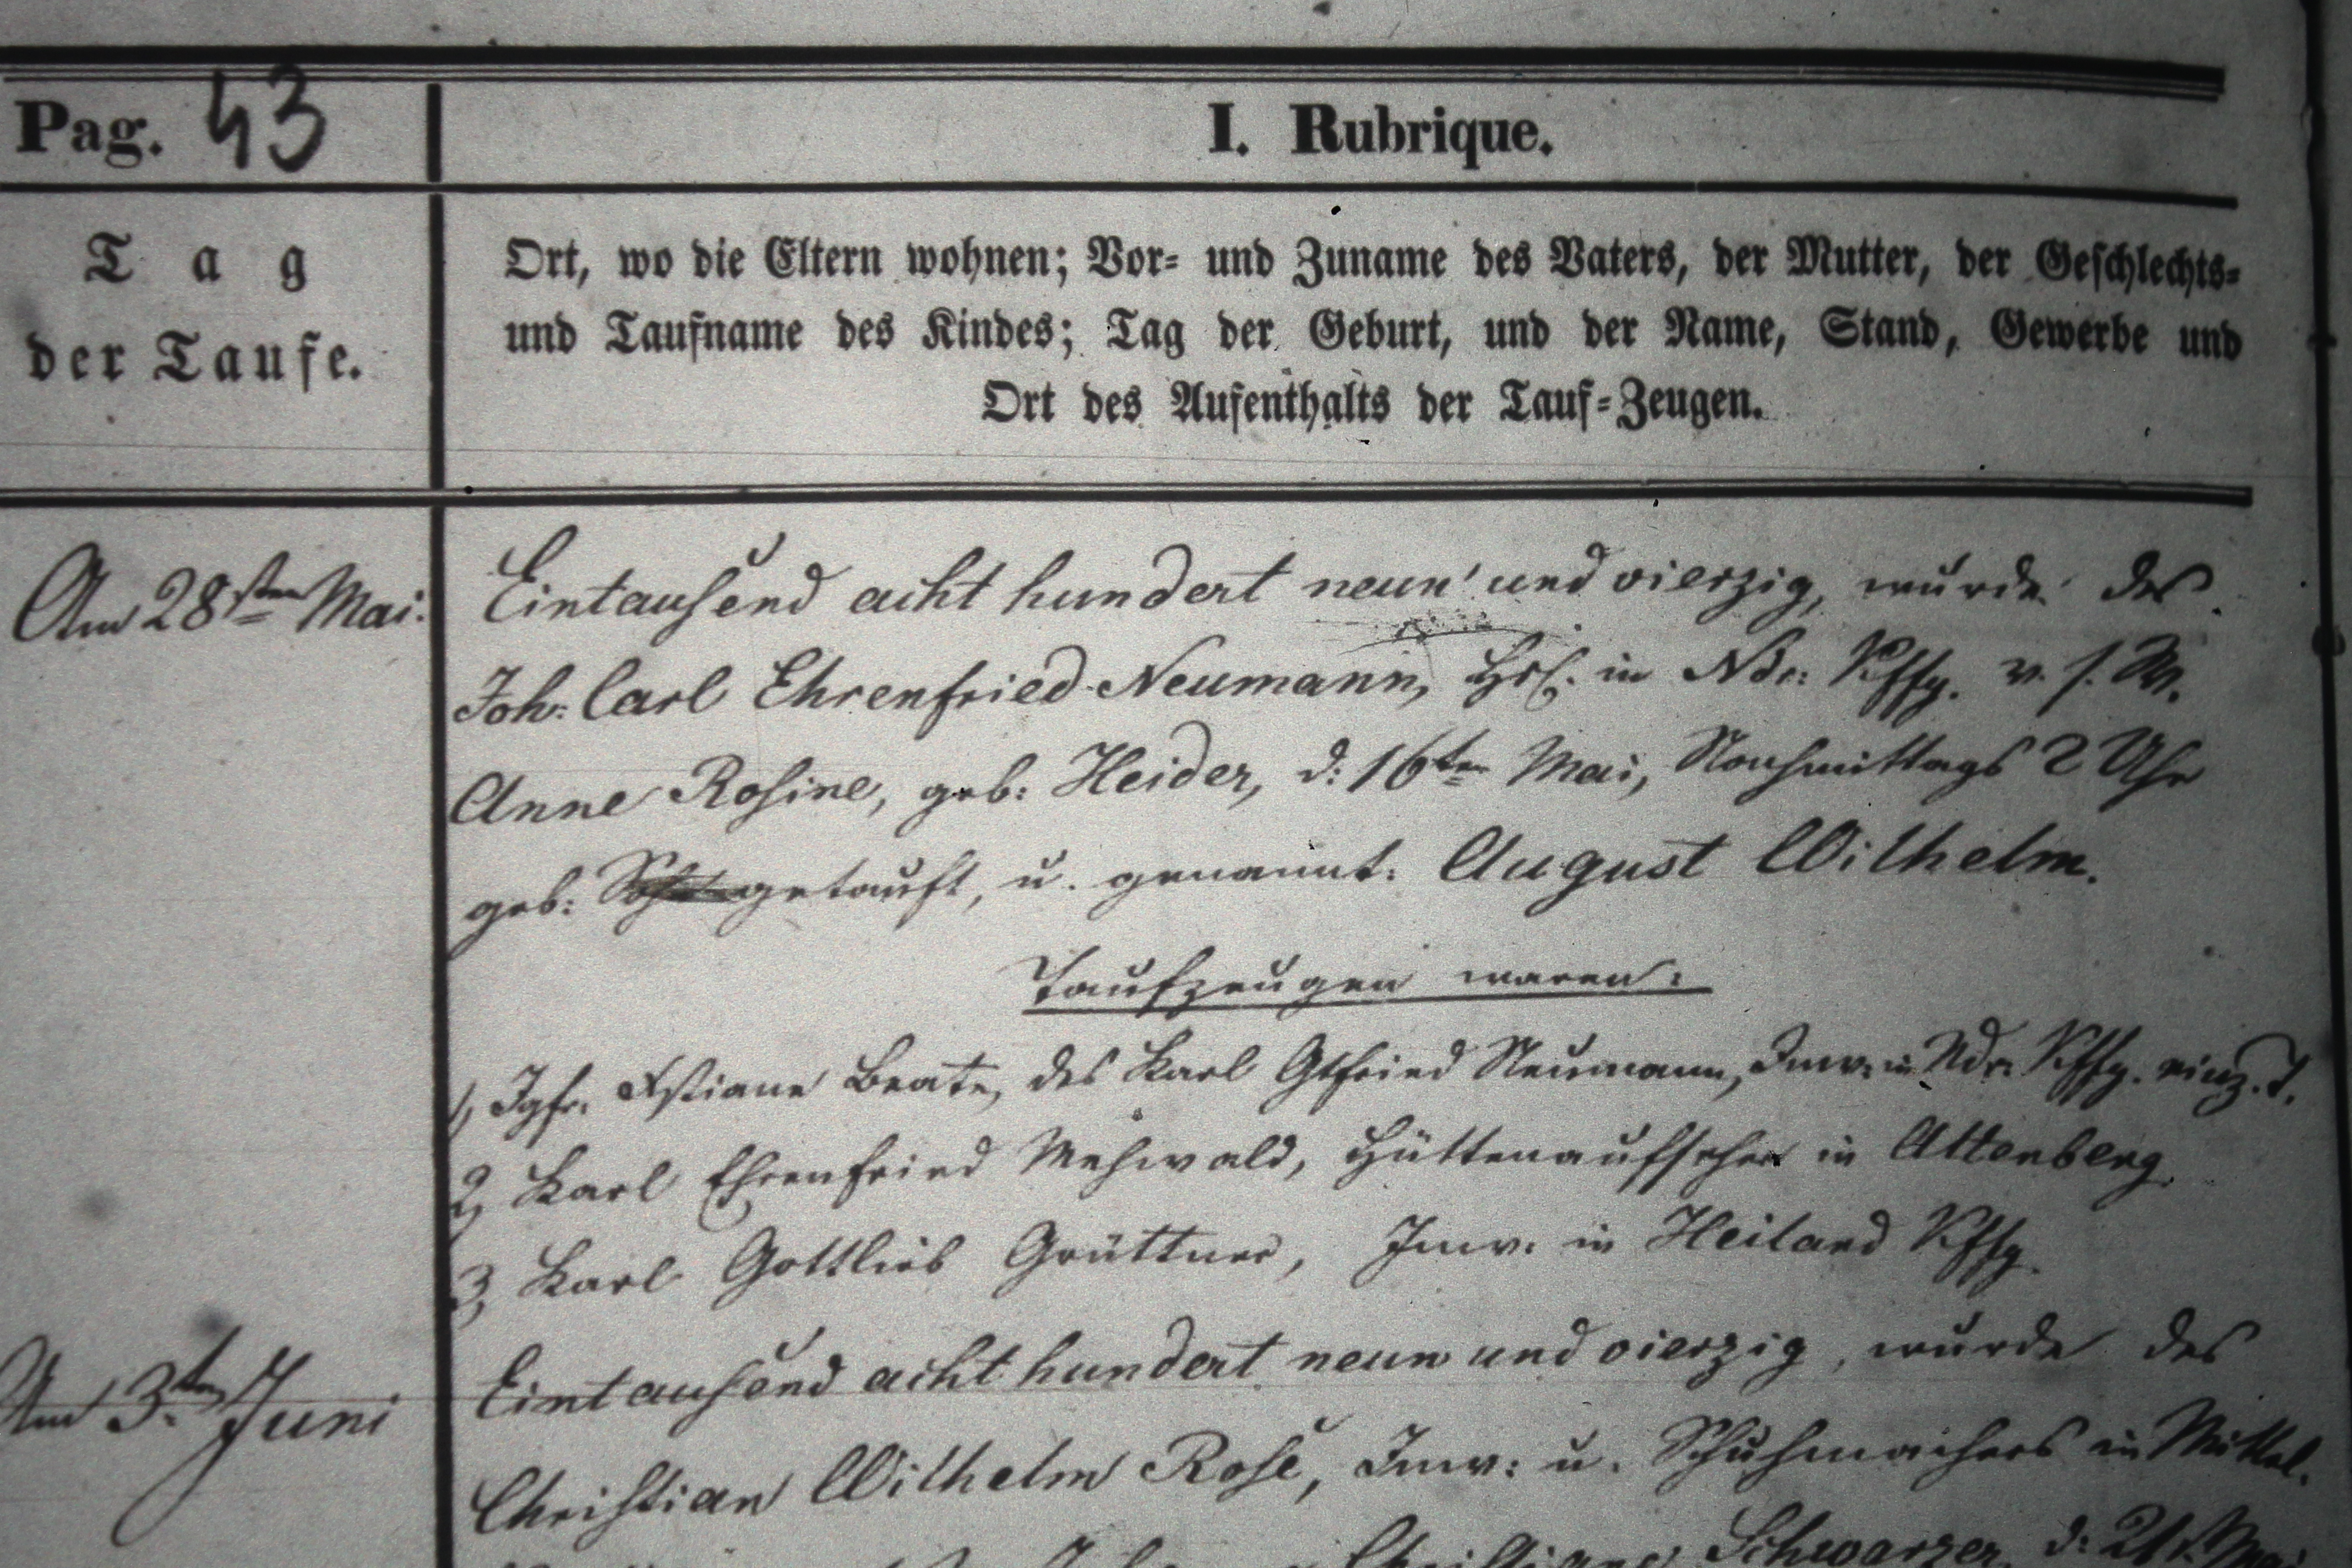 Pag. 43
I. Rubrique.
Tag
der Taufe.
Ort, wo die Eltern wohnen; Vor- und Zuname des Vaters, der Mutter, der Geschlechts-
und Taufname des Kindes; Tag der Geburt, und der Name, Stand, Gewerbe und
Ort des Aufenthalts der Tauf-Zeugen.
Am 28sten Mai.
Eintausend acht hundert neun und vierzig, wurde des
Joh: Carl Ehrenfried Neumann, in Ndr: Kffg. v. s. W.
Anne Rosine, geb: Heider, d: 16ten Mai, Nachmittags 2 Uhr
geb: getauft, u. genannt: August Wilhelm.
Taufzeugen waren:
1, Igfr. Beate, des Karl Gtfried Neumann, Inw: in Ndr: Kffg. einz. T.
2, Karl Ehrenfried Mehwald, Hüttenaufseher in Altenberg
3, Karl Gottlieb Grüttner, Inw. in Heiland Kffg
Am 3ten Juni
Eintausend acht hundert neun und vierzig, wurde des
Christian Wilhelm Rose, Inw: u. Schuhmachers in Mittel.
Schwarzer, d: 21